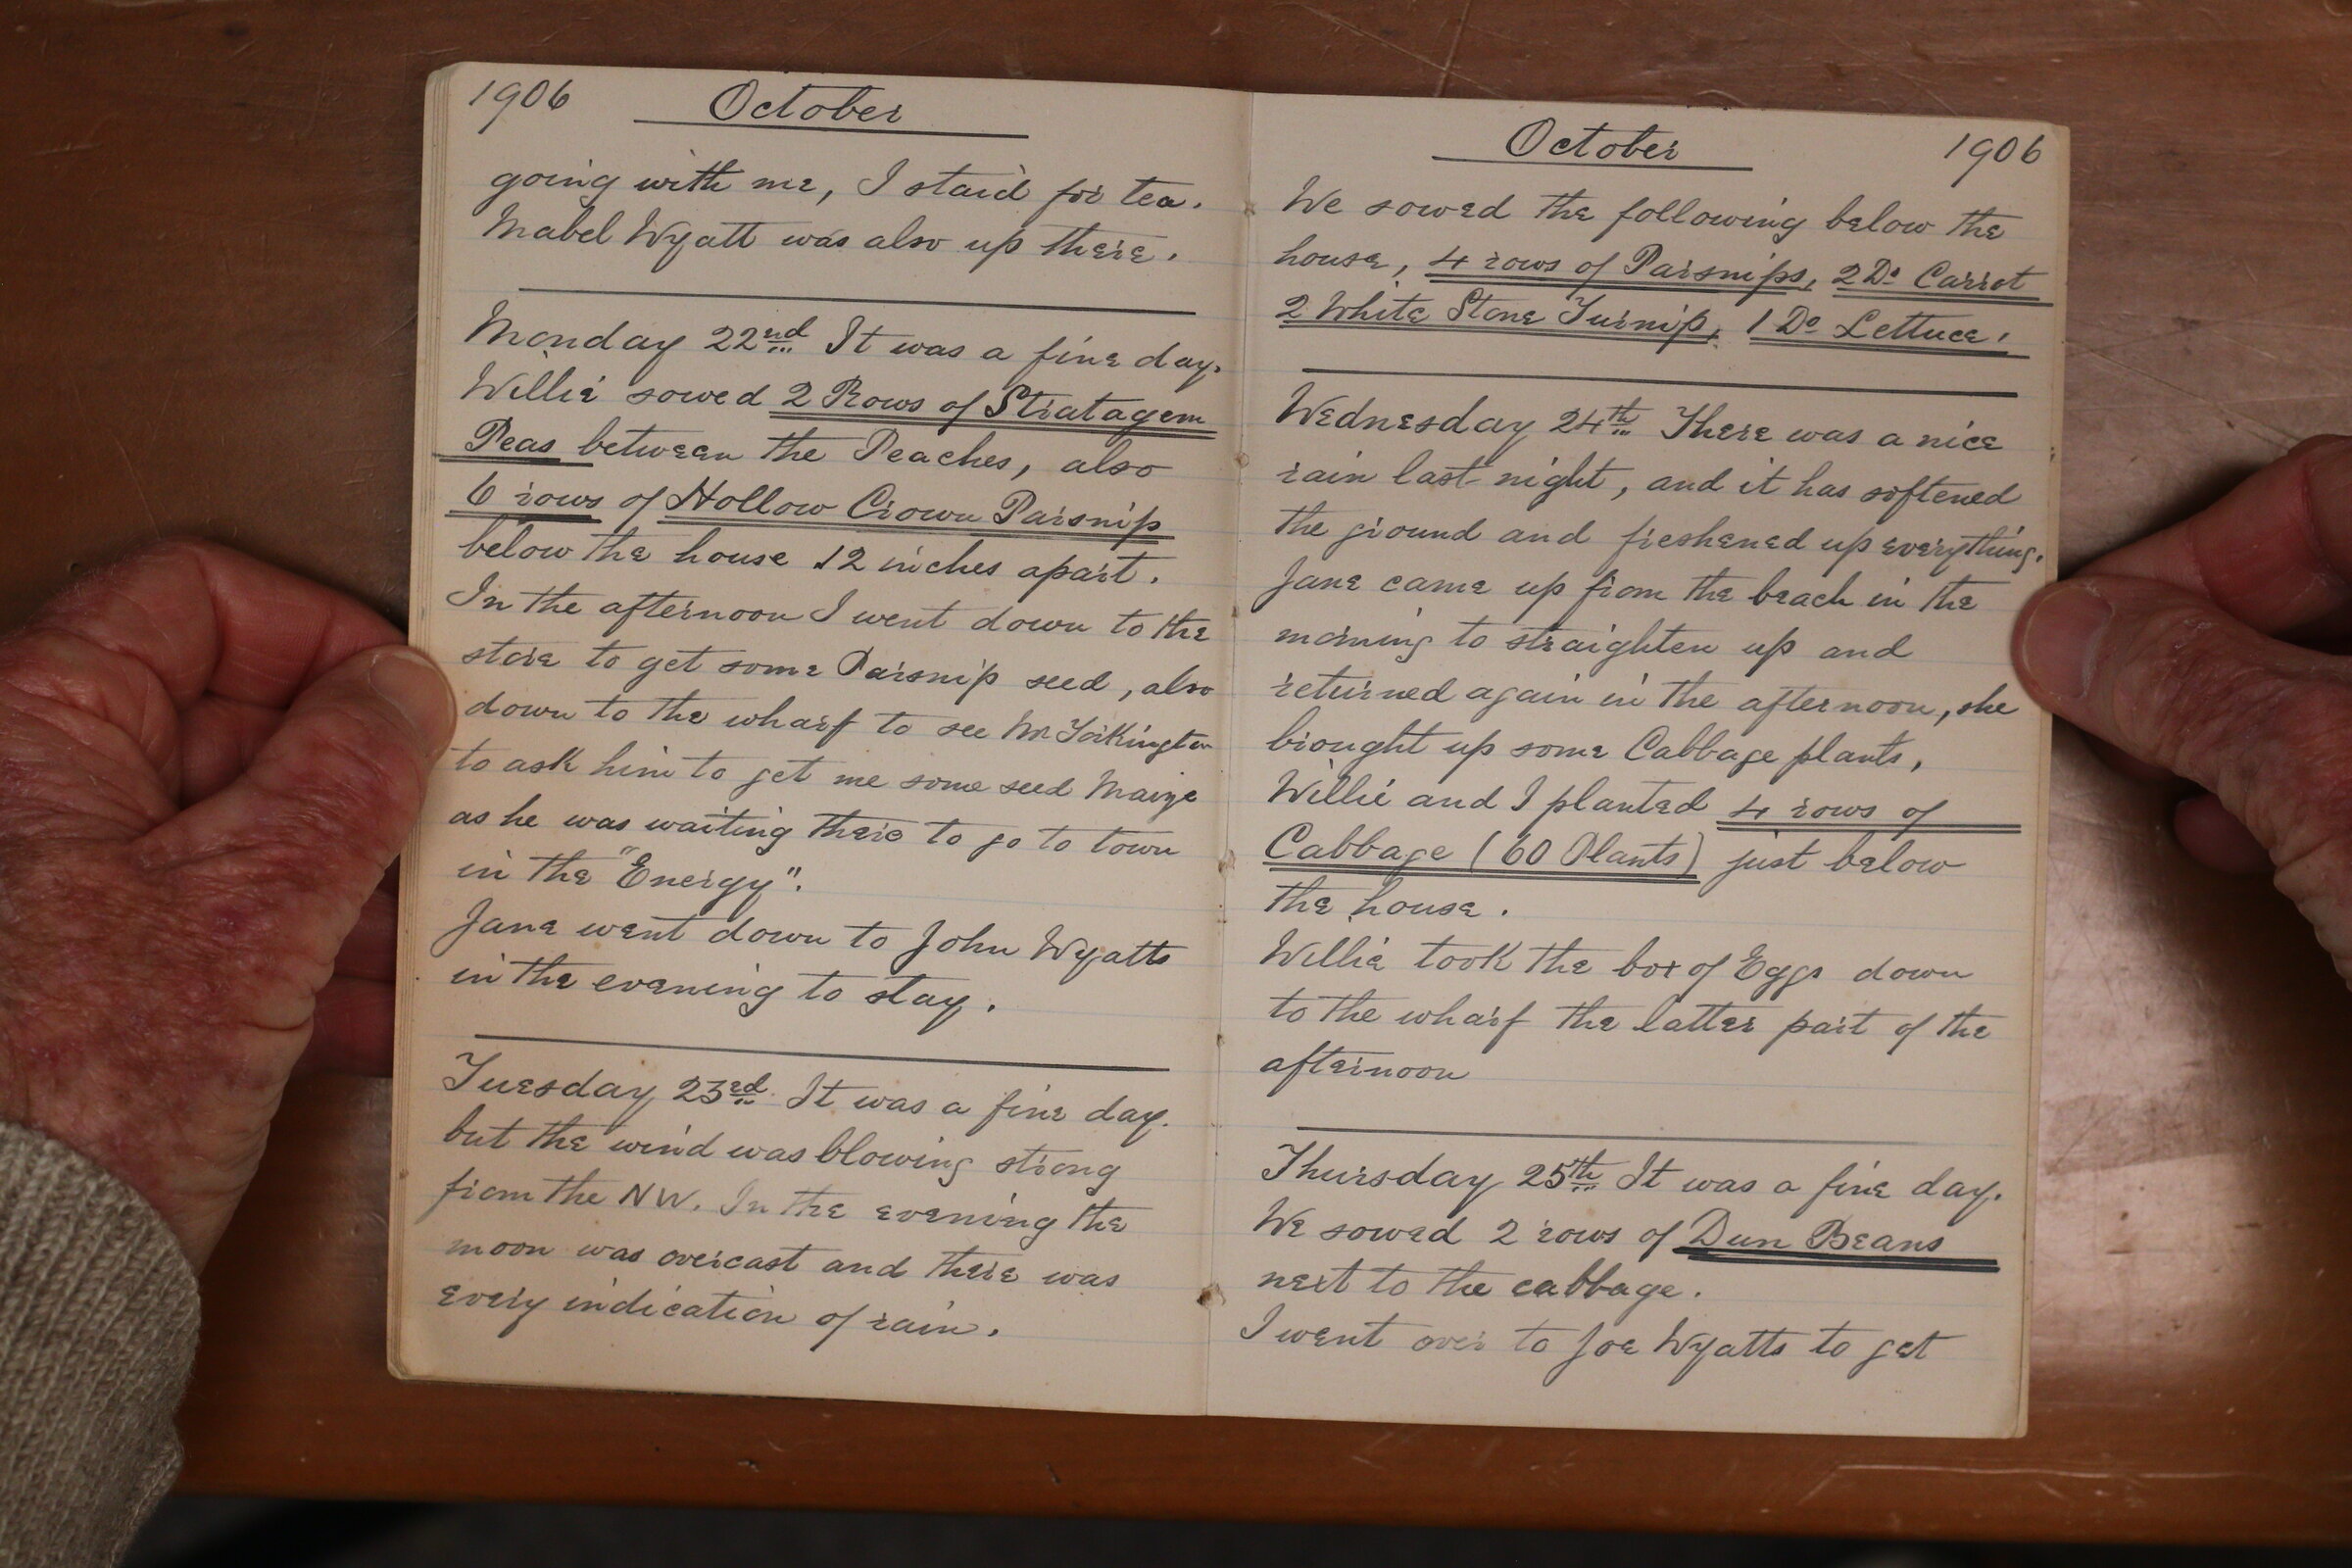 1906 October
going with me, I staid for tea.
Mabel Wyatt was also up there.
Monday 22nd It was a fine day.
Willie sowed 2 Rows of Stratagem
Peas between the Peaches, also
6 rows of Hollow Crown Parsnip
below the house 12 inches apart.
In the afternoon I went down to the
store to get some Parsnip seed, also
down to the wharf to see Mr Torkington
to ask him to get me some seed Maize
as he was waiting there to go to town
in the "Energy".
Jane went down to John Wyatts
in the evening to stay.
Tuesday 23rd. It was a fine day.
but the wind was blowing strong
from the NW. In the evening the
moon was overcast and there was
every indication of rain.
October 1906
We sowed the following below the
house, 4 rows of Parsnips, 2 Do Carrot
2 White Stone Turnip, 1 Do Lettuce.
Wednesday 24th There was a nice
rain last night, and it has softened
the ground and freshened up everything.
Jane came up from the beach in the
morning to straighten up and
returned again in the afternoon, she
brought up some Cabbage plants,
Willie and I planted 4 rows of
Cabbage (60 Plants) just below
the house.
Willie took the box of Eggs down
to the wharf the latter part of the
afternoon
Thursday 25th It was a fine day.
We sowed 2 rows of Dun Beans
next to the cabbage.
I went over to Joe Wyatts to get